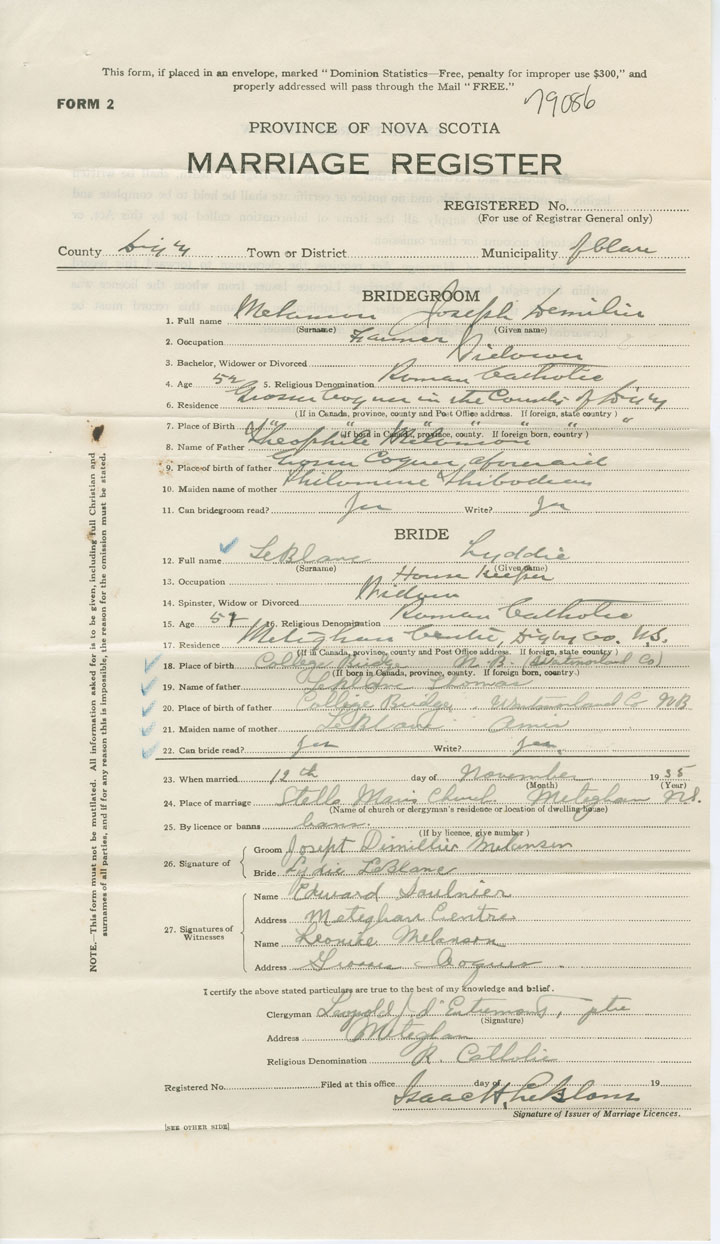 This form, if placed in an envelope, marked "Dominion Statistics—Free, penalty for improper use $300," and
properly addressed will pass through the Mail "FREE."
FORM 2
79086
PROVINCE OF NOVA SCOTIA
MARRIAGE REGISTER
REGISTERED No.
(For use of Registrar General only)
County Digby Town or District Municipality of Clare
BRIDEGROOM
1. Full name Melanson Joseph Demilier
(Surname) (Given name)
2. Occupation Farmer
3. Bachelor, Widower or Divorced Widower
4. Age 52 5. Religious Denomination Roman Catholic
6. Residence Grosses Coques in the County of Digby
(If in Canada, province, county and Post Office address. If foreign, state country)
7. Place of Birth " " " " " "
(If born in Canada, province, county. If foreign born, country)
8. Name of Father Theophile Melanson
9. Place of birth of father Grosses Coques aforesaid
10. Maiden name of mother Philomene Thibodeau
11. Can bridegroom read? Yes Write? Yes
BRIDE
12. Full name LeBlanc Lyddie
(Surname) (Given name)
13. Occupation House Keeper
14. Spinster, Widow or Divorced Widow
15. Age 16. Religious Denomination Roman Catholic
17. Residence Meteghan Centre, Digby Co. N.S.
(If in Canada, province, county and Post Office address. If foreign, state country)
18. Place of birth College Bridge N.B. (Westmorland Co)
(If born in Canada, province, county. If foreign born, country.)
19. Name of father LeBlanc Thomas
20. Place of birth of father College Bridge, Westmorland Co NB
21. Maiden name of mother LeBlanc
22. Can bride read? Yes Write? Yes
23. When married 12th day of November 1935
(Month) (Year)
24. Place of marriage Stella Maris Church Meteghan N.S.
(Name of church or clergyman's residence or location of dwelling-house)
25. By licence or banns bans.
(If by licence, give number)
26. Signature of
Groom Joseph Dimillier Melanson
Bride Lydie LeBlanc
27. Signatures of Witnesses
Name Edward Saulnier
Address Meteghan Centre
Name Melanson
Address Grosses Coques
I certify the above stated particulars are true to the best of my knowledge and belief.
Clergyman Leopold J d'Entremont, ptre
(Signature)
Address Meteghan
Religious Denomination R. Catholic
Registered No. Filed at this office day of 19
Isaac H. LeBlanc
Signature of Issuer of Marriage Licences.
[SEE OTHER SIDE]
NOTE.—This form must not be mutilated. All information asked for is to be given, including full Christian and
surnames of all parties, and if for any reason this is impossible, the reason for the omission must be stated.